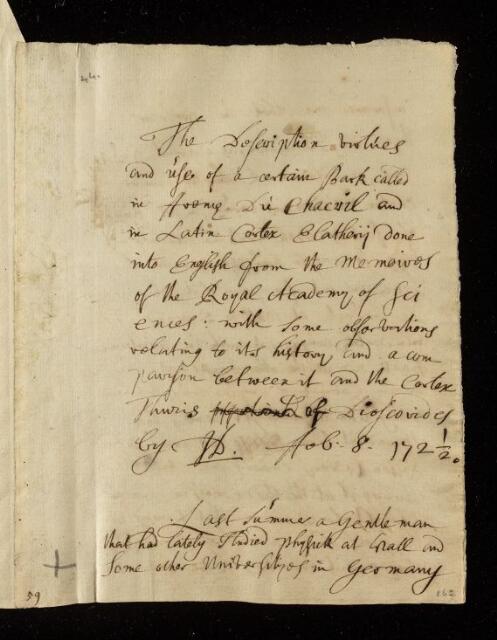 The Description virtues
and use of a certain Bark called
in French Du Chacril and
in Latin Cortex Elatherij done
into English from the Memoires
of the Royal Academy of Sci
ences: with some observations
relating to its history and a com
parison between it and the Cortex
Thuris of Dioscorides
by JD. Feb. 8. 172 1/2.
Last Summer a Gentleman
that had lately Studied physick at Hall and
Some other Universityes in Germany
59